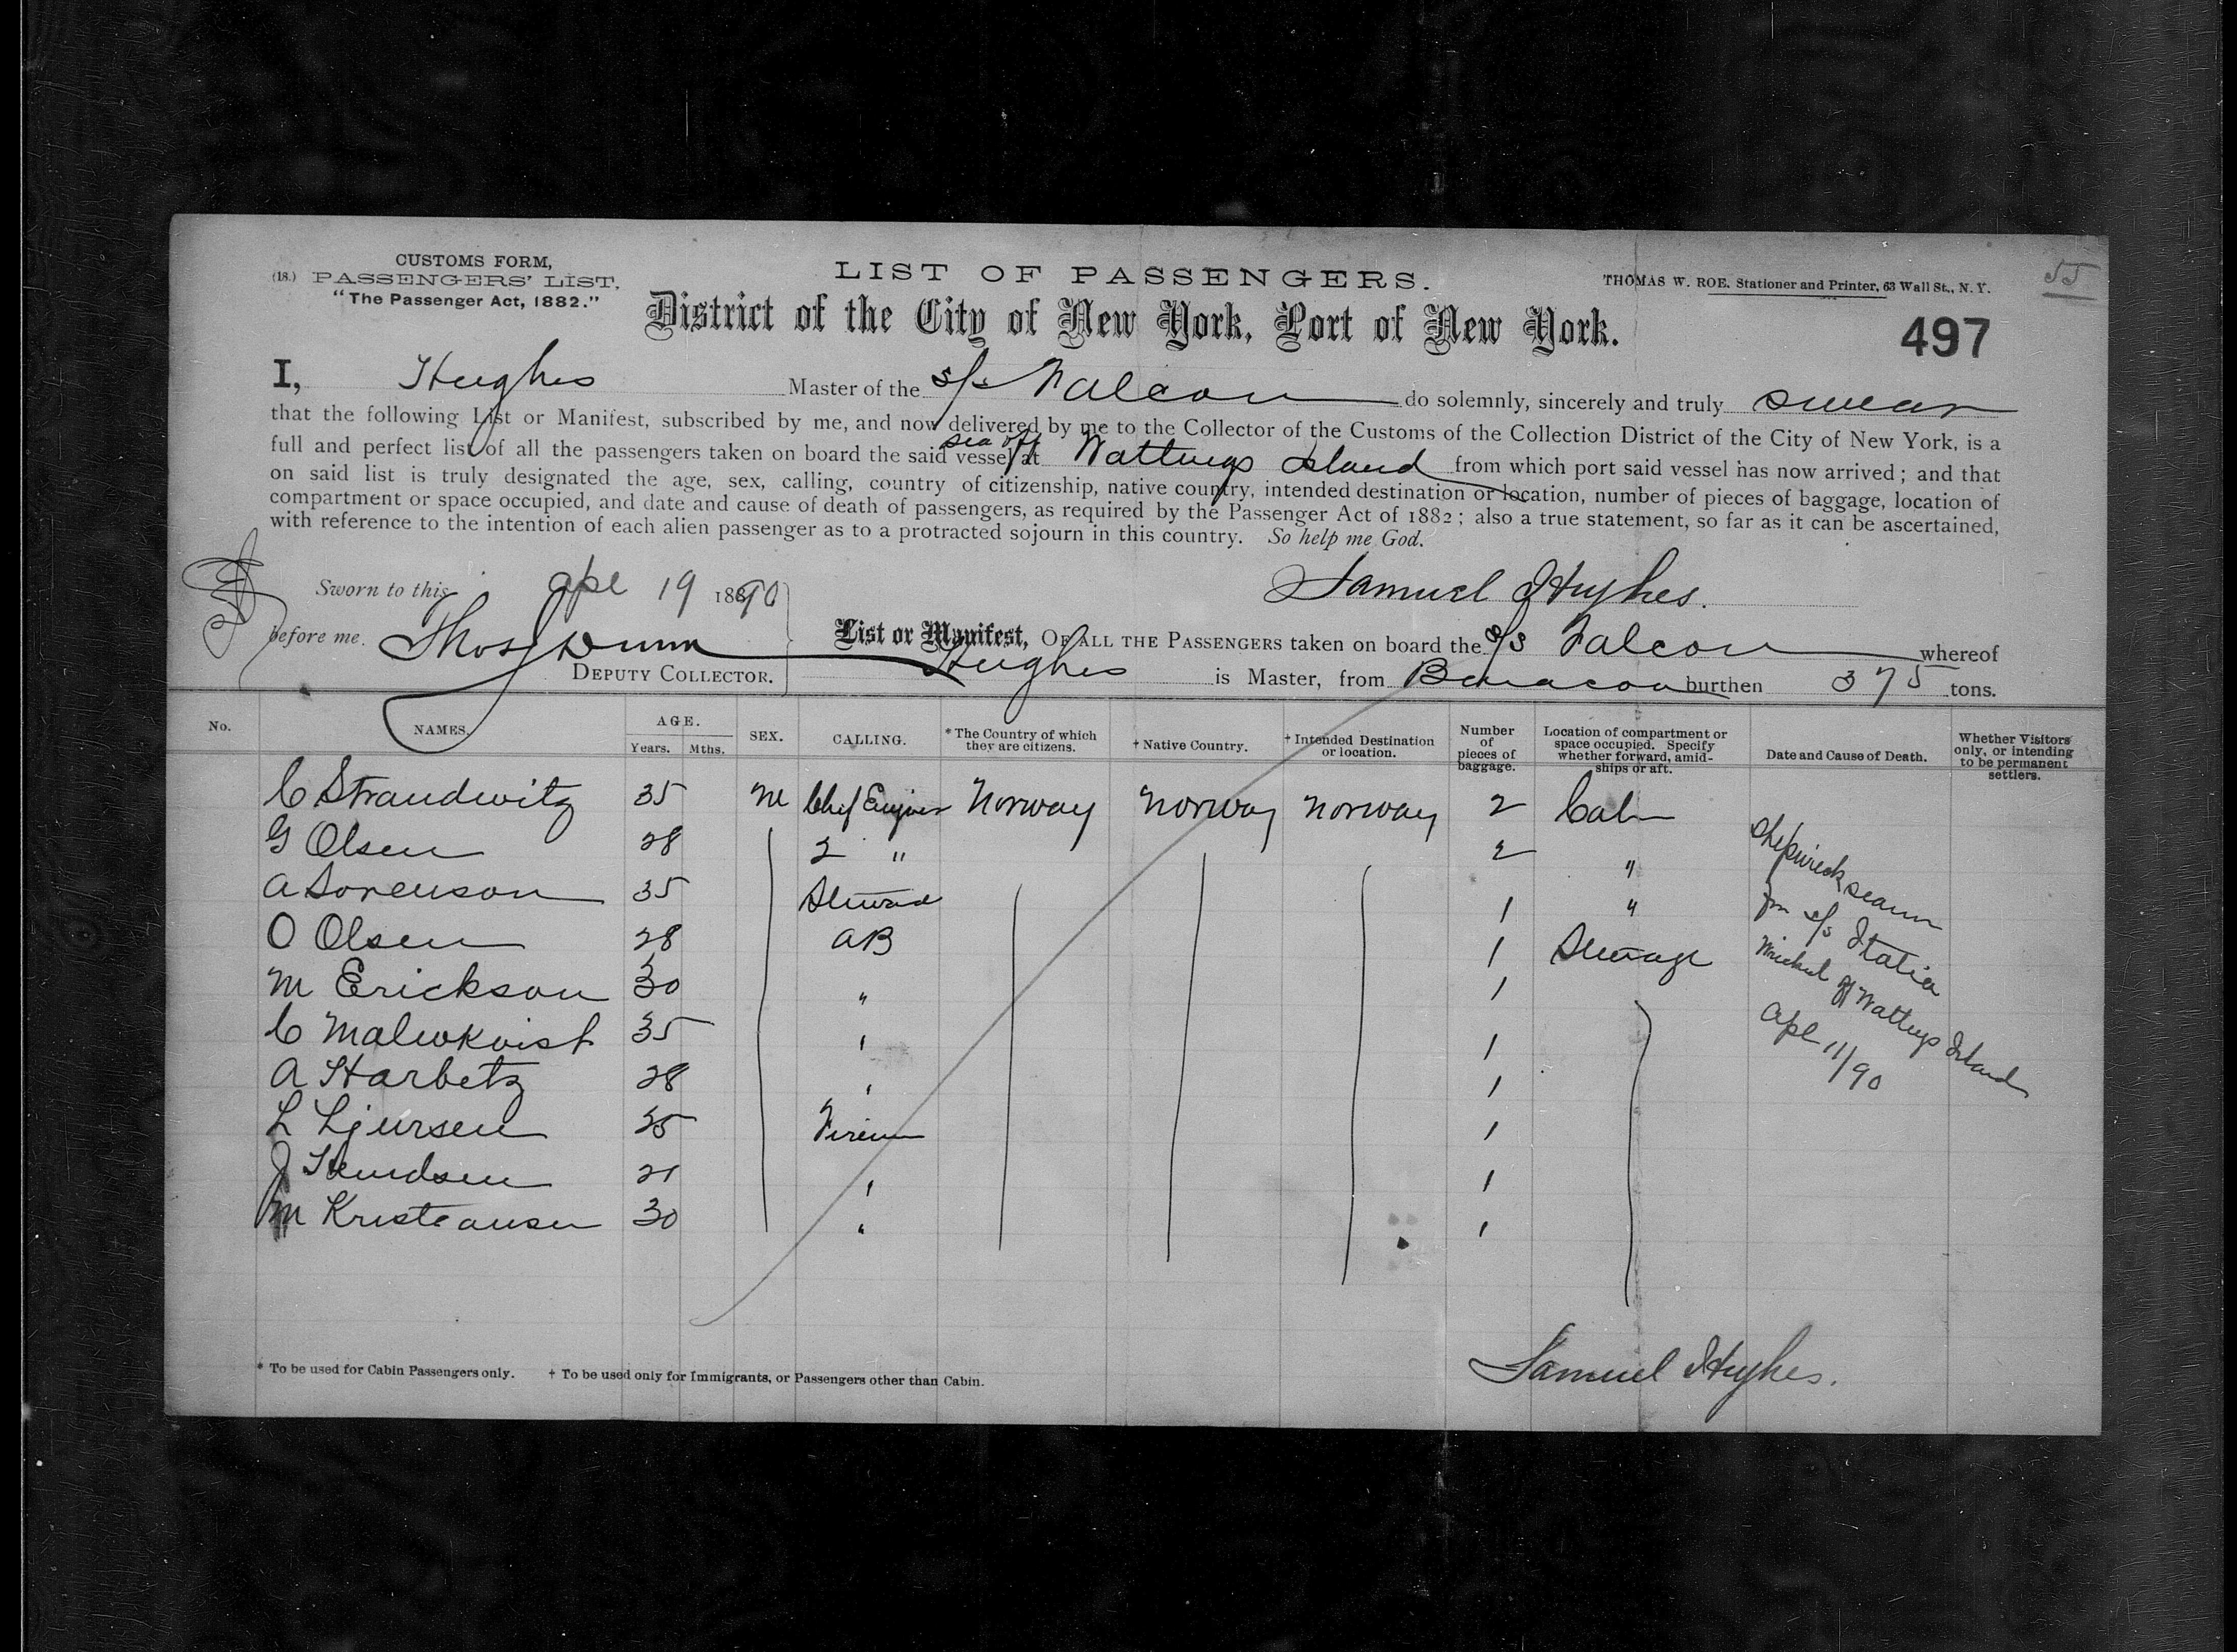 CUSTOMS FORM,
(18.) PASSENGERS' LIST,
"The Passenger Act, 1882."
LIST OF PASSENGERS.
THOMAS W. ROE. Stationer and Printer, 63 Wall St., N. Y.
55
District of the City of New York, Port of New York.
497
I, Hughes Master of the s/s Falcon do solemnly, sincerely and truly swear
that the following List or Manifest, subscribed by me, and now delivered by me to the Collector of the Customs of the Collection District of the City of New York, is a
full and perfect list of all the passengers taken on board the said vessel at sea off Wattings Island from which port said vessel has now arrived; and that
on said list is truly designated the age, sex, calling, country of citizenship, native country, intended destination or location, number of pieces of baggage, location of
compartment or space occupied, and date and cause of death of passengers, as required by the Passenger Act of 1882; also a true statement, so far as it can be ascertained,
with reference to the intention of each alien passenger as to a protracted sojourn in this country. So help me God.
Sworn to this Apl 19 1890
Samuel Hughes.
before me. Thos Dunn
DEPUTY COLLECTOR.
List or Manifest, OF ALL THE PASSENGERS taken on board the s/s Falcon whereof
Hughes is Master, from Baracoa burthen 375 tons.
No. NAMES. AGE. Years. Mths. SEX. CALLING. * The Country of which they are citizens. † Native Country. † Intended Destination or location. Number of pieces of baggage. Location of compartment or space occupied. Specify whether forward, amidships or aft. Date and Cause of Death. Whether Visitors only, or intending to be permanent settlers.
C Strandwitz 35 M Chief Engineer Norway Norway Norway 2 Cabin
G Olsen 28 2 " 2 "
A Sorenson 35 Steward 1 "
O Olsen 28 AB 1 Steerage
M Erickson 30 " 1
C Malmkvist 35 " 1
A Harbetz 28 " 1
L Ljursen 25 Firemen 1
J Knudsen 21 " 1
M Kristeansen 30 " 1
Shipwreck seamen
fm s/s Italia
Wrecked off Wattings Island
Apl 11/90
* To be used for Cabin Passengers only. † To be used only for Immigrants, or Passengers other than Cabin.
Samuel Hughes.